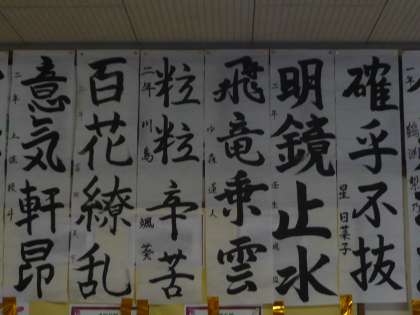 確乎不抜
星 日菜子
明鏡止水
二年
飛竜乗雲
小森 蓮人
粒粒辛苦
二年 川島 颯葵
百花繚乱
意気軒昂
二年